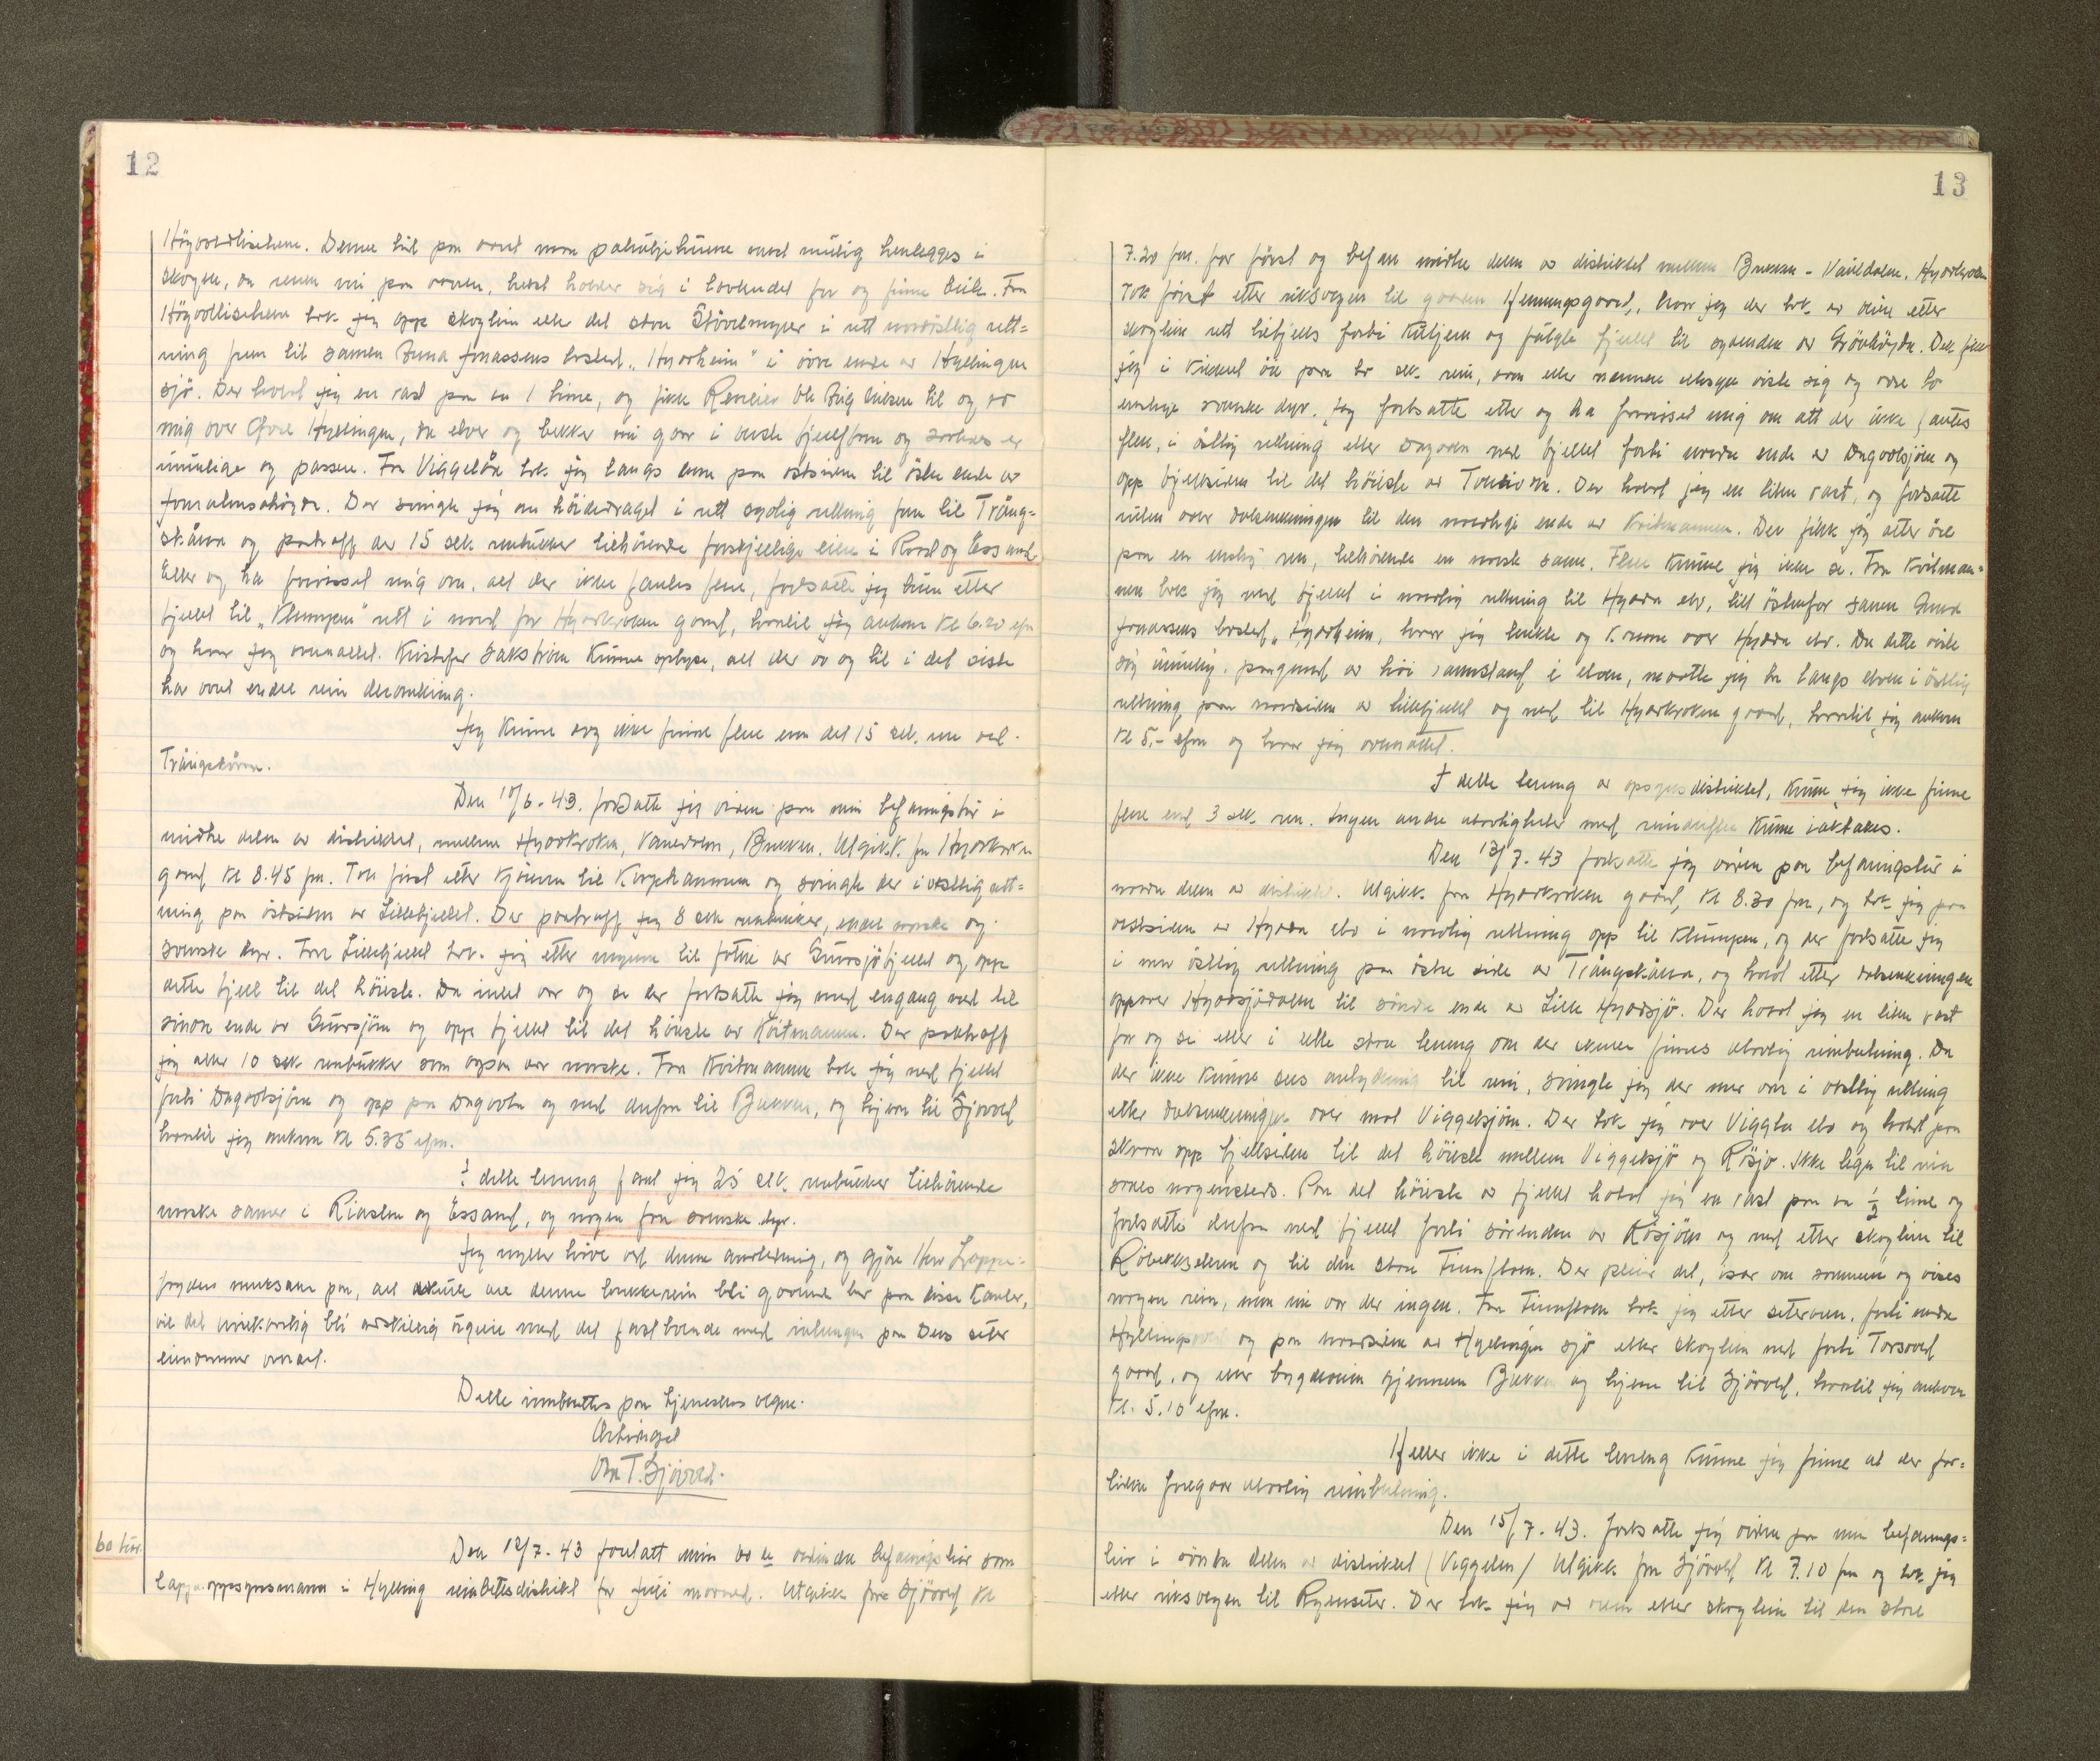 12
Högvollisetrene. Denne tid paa aaret maa patruljeturene mest mulig henlegges i
skogen, da renen nu paa vaaren, helst holder sig i lavlandet for og finne beite. Fra
Högvollisetrene tok jeg opp skoglien etter det store Stövelmyrer i rett nordöstlig ret=
ning frem til samen Anna Jonassens bosted „Hyddheim" i övre ende av Hyllingen
sjö. Der holdt jeg en rast paa en 1 time, og fikk Reneier Ole Thielsen til og ro
mig over Hyllingen, da elver og bekker nu gaar i verste fjellflom og saaledes er
umulige og passere. Fra Viggelån tok jeg langs denne paa östsiden til östre ende av
Jonsalmsahögda. Der svingte jeg om höidedraget i rett sydlig retning frem til Trång=
skåran og paatraff der 15 stk renbukker tilhörende forskjellige eiere i Roasl og Essand.
Etter og ha forvisset mig om, att der ikke fantes flere, fortsatte jeg turen etter
fjellet til „Klumpen" rett i nord for Hyddkroken gaard, hvortil jeg ankom kl 6.20 efm
og hvor jeg overnattet. Kristofer Bakström kunne oplyse, att der av og til i det siste
har vært endel rein deromkring.
Jeg kunne dog ikke finne flere enn det 15 stk. ren ved
Trångskåran.
Den 10/6-43. fortsatte jeg videre paa min befaringstur i
midtre delen av distriktet, mellem Hyddkroken, Vauldalen, Brekken. Utgikk fra Hyddkroken
gaard kl 8.45 fm. Tok först etter kjölen til Korphammern og svingte der i östlig ret=
ning paa östsiden av Lillefjellet. Der paatraff jeg 8 stk renbukker, endel norske og
svenske dyr. Fra Lillefjellet tok jeg etter myrene til foten av Gruvsjöfjellet og opp
dette fjell til det höieste. Da intet var og se der fortsatte jeg med engang ned til
sindre ende av Gruvsjöen og opp fjellet til det höieste av Kvitmannen. Der paatraff
jeg atter 10 stk renbukker som ogsaa var norske. Fra Kvitmannen tok jeg ned fjellet
forbi Dagvolsjöen og opp paa Dagvola og ned derfra til Brekken, og hjem til Sjövold
hvortil jeg ankom kl 5.35 efm.
I dette terreng fant jeg 25 stk. renbukker tilhörende
norske samer i Riasten og Essand, og nogen faa svenske dyr.
Jeg nytter höve ved denne anledning, og gjöre Herr Lappe=
fogden merksam paa, att skulde alle denne bukkerein bli gaaende her paa disse kanter,
vil det uvilkaarlig bli adskillig ögreie med det fastboende med reitengen paa Deres seter
eiendommer overalt.
Dette innberettes paa tjenestens vegne.
Arbödigst
Ole T. Sjövold.
60 tur.
Den 12/7-43 foretatt min 60 de ordinære befaringstur som
Lappeoppsynsmann i Hylling reinbetesdistrikt for Juli maaned. Utgikk fra Sjövold kl
13
7.20 fm. for först og befare midtre delen av distriktet mellem Brekken - Vauldalen. Hyddkroken
Tok först etter riksvegen til gaarden Henningsgaard, hvor jeg der tok av veien etter
skoglien rett tilfjells forbi Kultjern og fulgte fjellet til sydenden av Grövhögda. Der fikk
jeg i kikkert öie paa to stk. rein, som etter nærmere ettersyn viste sig og være to
enslige svenske dyr. Jeg fortsatte etter og ha forvisset mig om att der ikke fantes
flere, i östlig retning etter dagvola ned fjellet forbi nordre ende av Dagvolsjöen og
opp fjellsiden til det höieste av Tonsivola. Der holdt jeg en liten rast, og fortsatte
siden over dalsenkningen til den nordlige ende av Kvitmannen. Der fikk jeg atter öie
paa en enslig ren, tilhörende en norsk same. Flere kunne jeg ikke se. Fra Kvitman=
nen tok jeg ned fjellet i nordlig retning til Hydda elv, litt östenfor samen Anna
Jonassens bosted, „Hyddheim, hvor jeg tenkte og komme over Hydda elv. Da dette viste
sig umulig, paagrund av höi vannstand i elven, maatte jeg ta langs elven i östlig
retning paa nordsiden av Lillefjellet og ned til Hyddkroken gaard, hvortil jeg ankom
kl 5,- efm og hvor jeg overnattet.
I dette tereng av opsynsdistriktet, kunne jeg ikke finne
flere end 3 stk. ren. Ingen andre ulovligheter med reindriften kunne iakttaes.
Den 13/7-43 fortsatte jeg videre paa befaringstur i
nordre delen av distriktet. Utgikk fra Hyddkroken gaard, kl 8.30 fm, og tok jeg paa
vestsiden av Hydda elv i nordlig retning opp til Klumpen, og der fortsatte jeg
i mer östlig retning paa östre side av Trångskåran, og holdt etter dalsenkningen
oppover Hyddsjödalen til söndre ende av Lille Hyddsjö. Der holdt jeg en liten rast
for og se etter i dette store terreng om der skulde finnes ulovlig reinbeitning. Da
der ikke kunne sees antydning til rein, svingte jeg der mer om i vestlig retning
etter dalsenkningen over mot Viggelsjöen. Der tok jeg over Viggla elv og holdt paa
skraa opp fjellsiden til det höieste mellem Viggelsjö og Rösjö. Ikke tegn til rein
saaes nogensteds. Paa det höieste av fjellet holdt jeg en rast paa en 1/2 time og
fortsatte derfra ned fjellet forbi sörenden av Rösjöen og ned etter skoglien til
Röbekkselene og til den store Finnfloen. Der pleier det, især om sommeren og vises
nogen rein, men nu var der ingen. Fra Finnfloen tok jeg etter seterveien, forbi nedre
Hyllingsvoll og paa nordsiden av Hyllingen sjö etter skoglien ned forbi Torsvoll
gaard, og etter bygdeveien gjennem Brekken og hjem til Sjövold, hvortil jeg ankom
kl. 5.10 efm.
Heller ikke i dette terreng kunne jeg finne at der for=
tiden foregaar ulovlig reinbeitning.
Den 15/7-43. fortsatte jeg videre paa min befarings=
tur i söndre delen av distriktet (Viggelen) Utgikk fra Sjövold kl 7.10 fm og tok jeg
etter riksvegen til Ryenseter. Der tok jeg av veien etter skoglien til den store